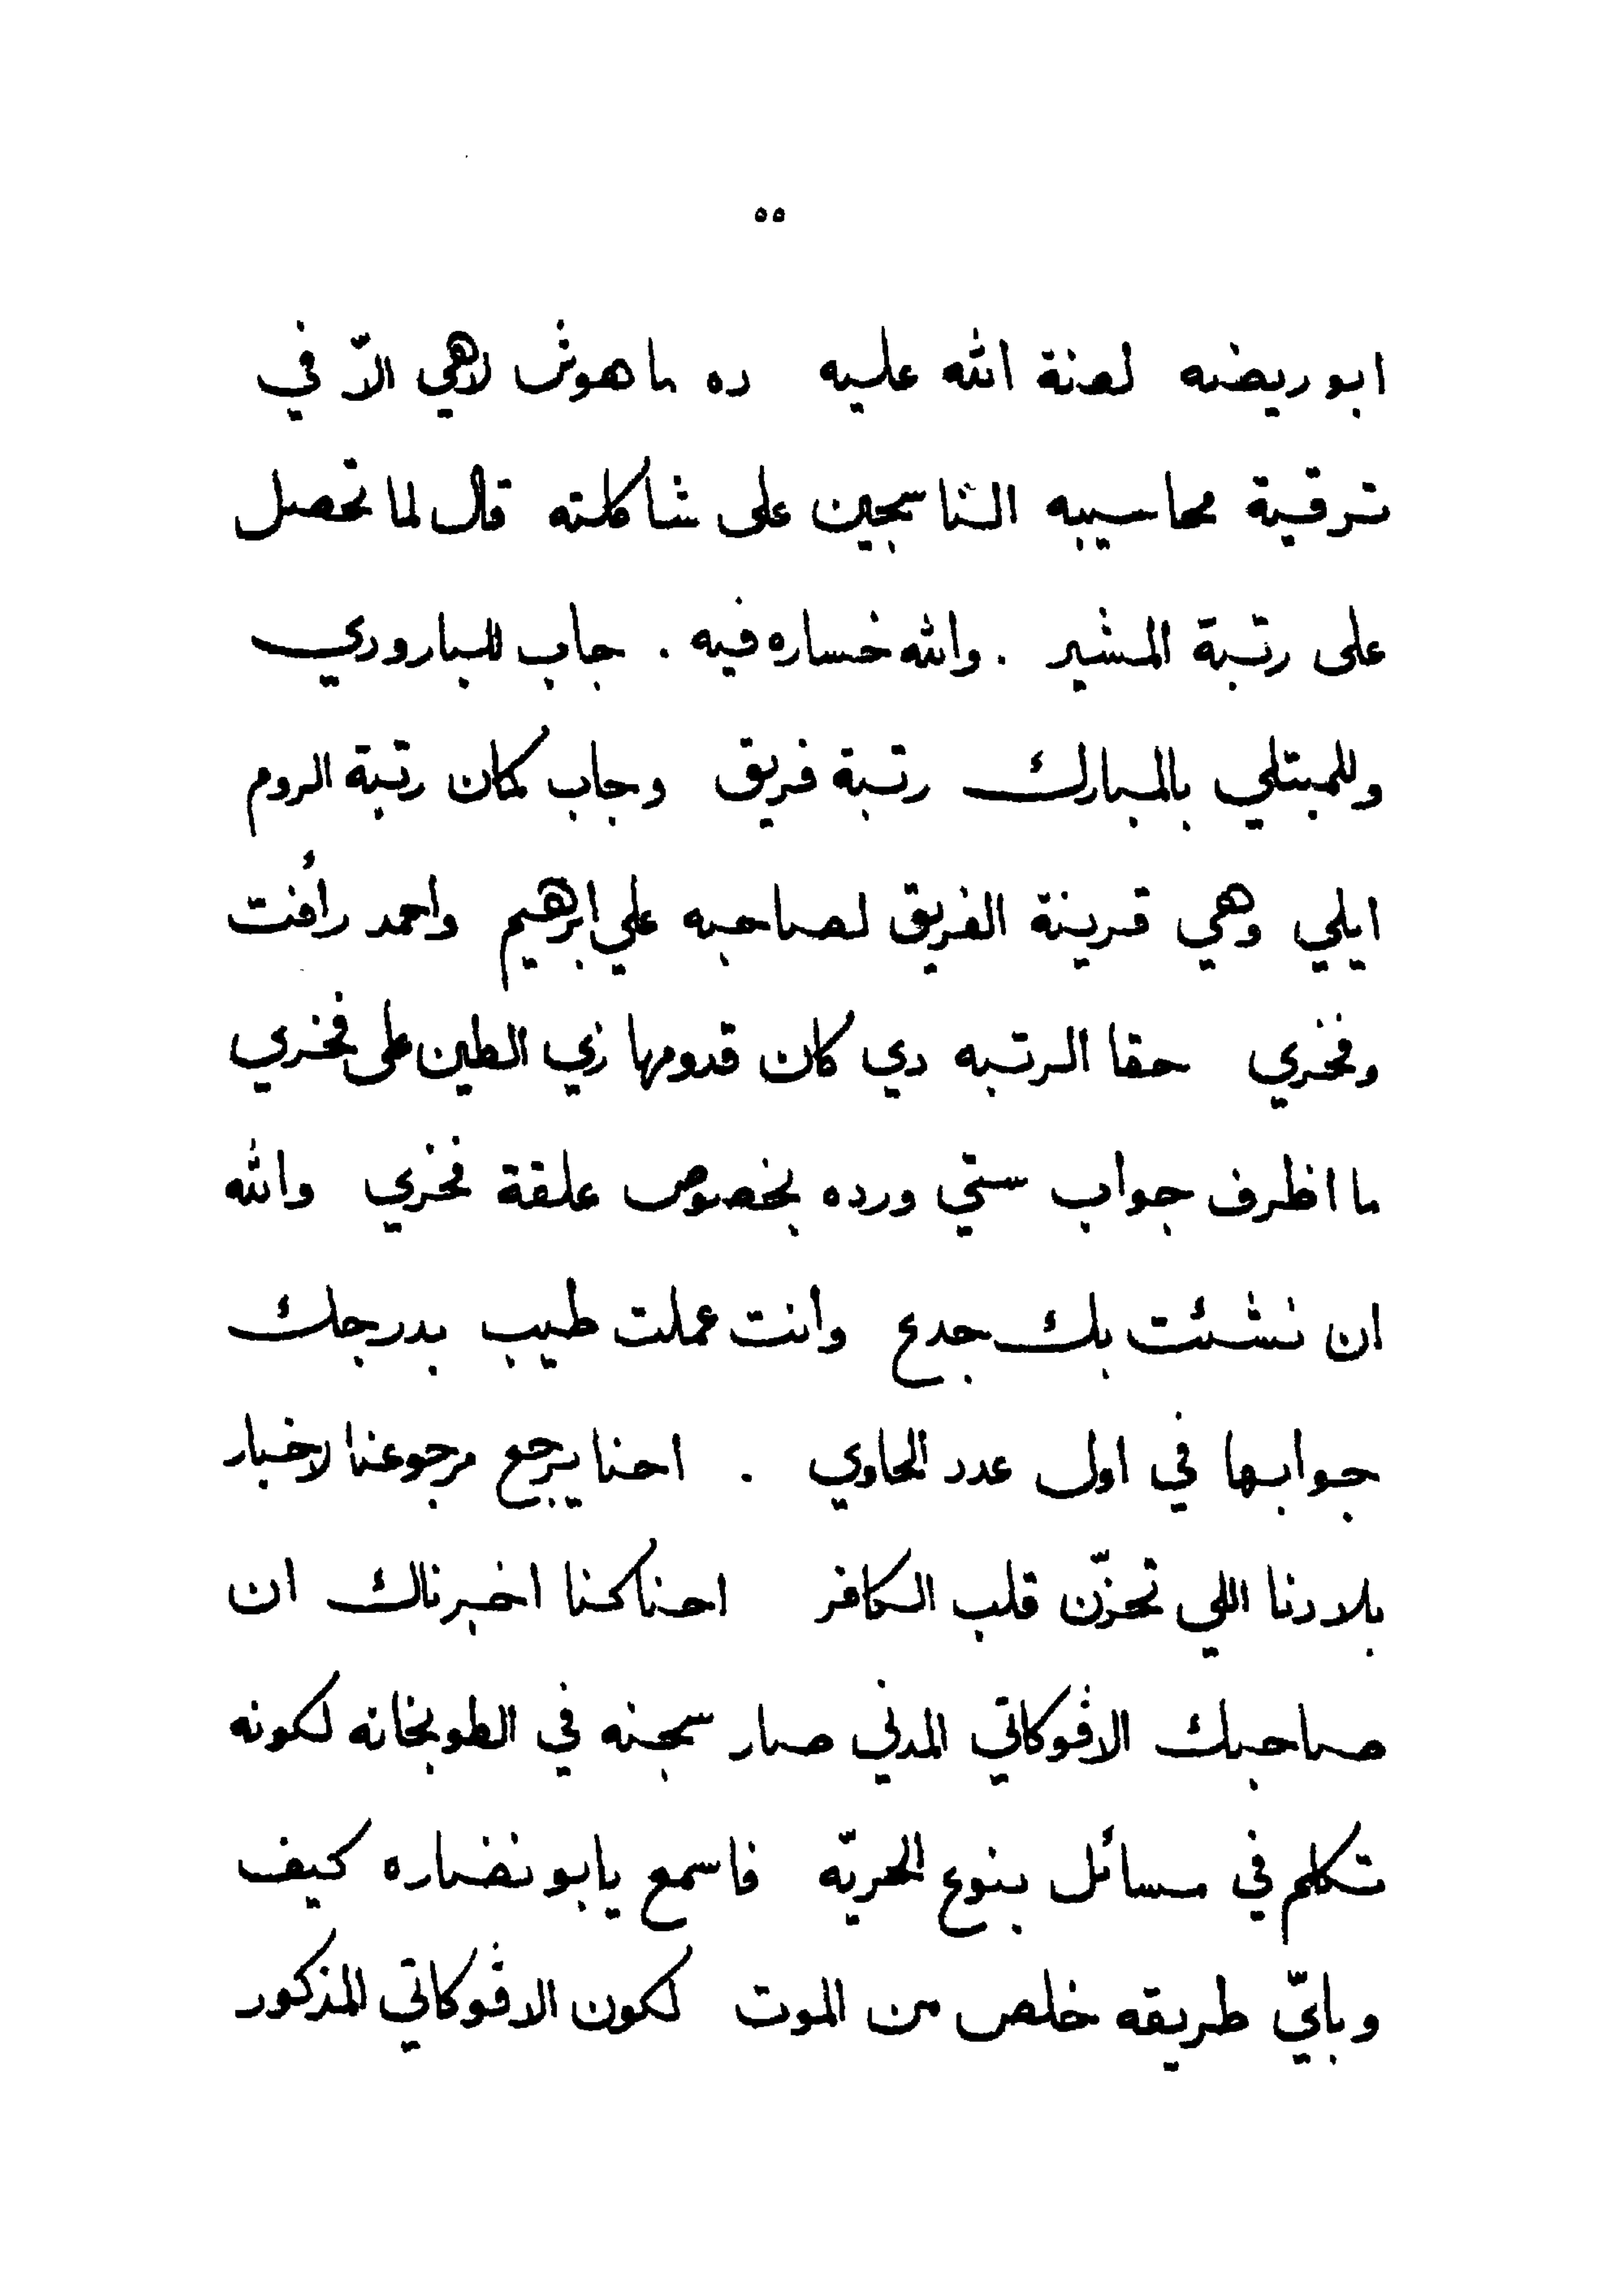 ٥٥
ابو ريضه لعنة الله عليه ده ما هوش لاهي الاّ في
ترقية محاسيبه الناسجين على شاكلته قال لما تحصل
على رتبة المشير . والله خساره فيه . جاب للبارودي
وللمبتلي بالمبارك رتبة فريق وجاب كمان رتبة الروم
ايلي وهي قرينة الفريق لصاحبه علي ابرهيم واحمد رأفت
وفخري حقا الرتبه دي كان قدومها زي الطين على فخري
ما اظرف جواب ستي ورده بخصوص علقة فخري والله
ان نشئت بك جدع وانت عملت طيب بدرجك
جوابها في اول عدد الحاوي . احنا يرجع مرجوعنا لاخبار
بلادنا اللي تحزّن قلب الكافر احنا كنا اخبرناك ان
صاحبك الافوكاتي المدني صار سجنه في الطوبخانه لكونه
تكلم في مسائل بنوع الحريّه فاسمع يا بو نضاره كيف
وبايّ طريقه خلص من الموت لكون الافوكاتي المذكور